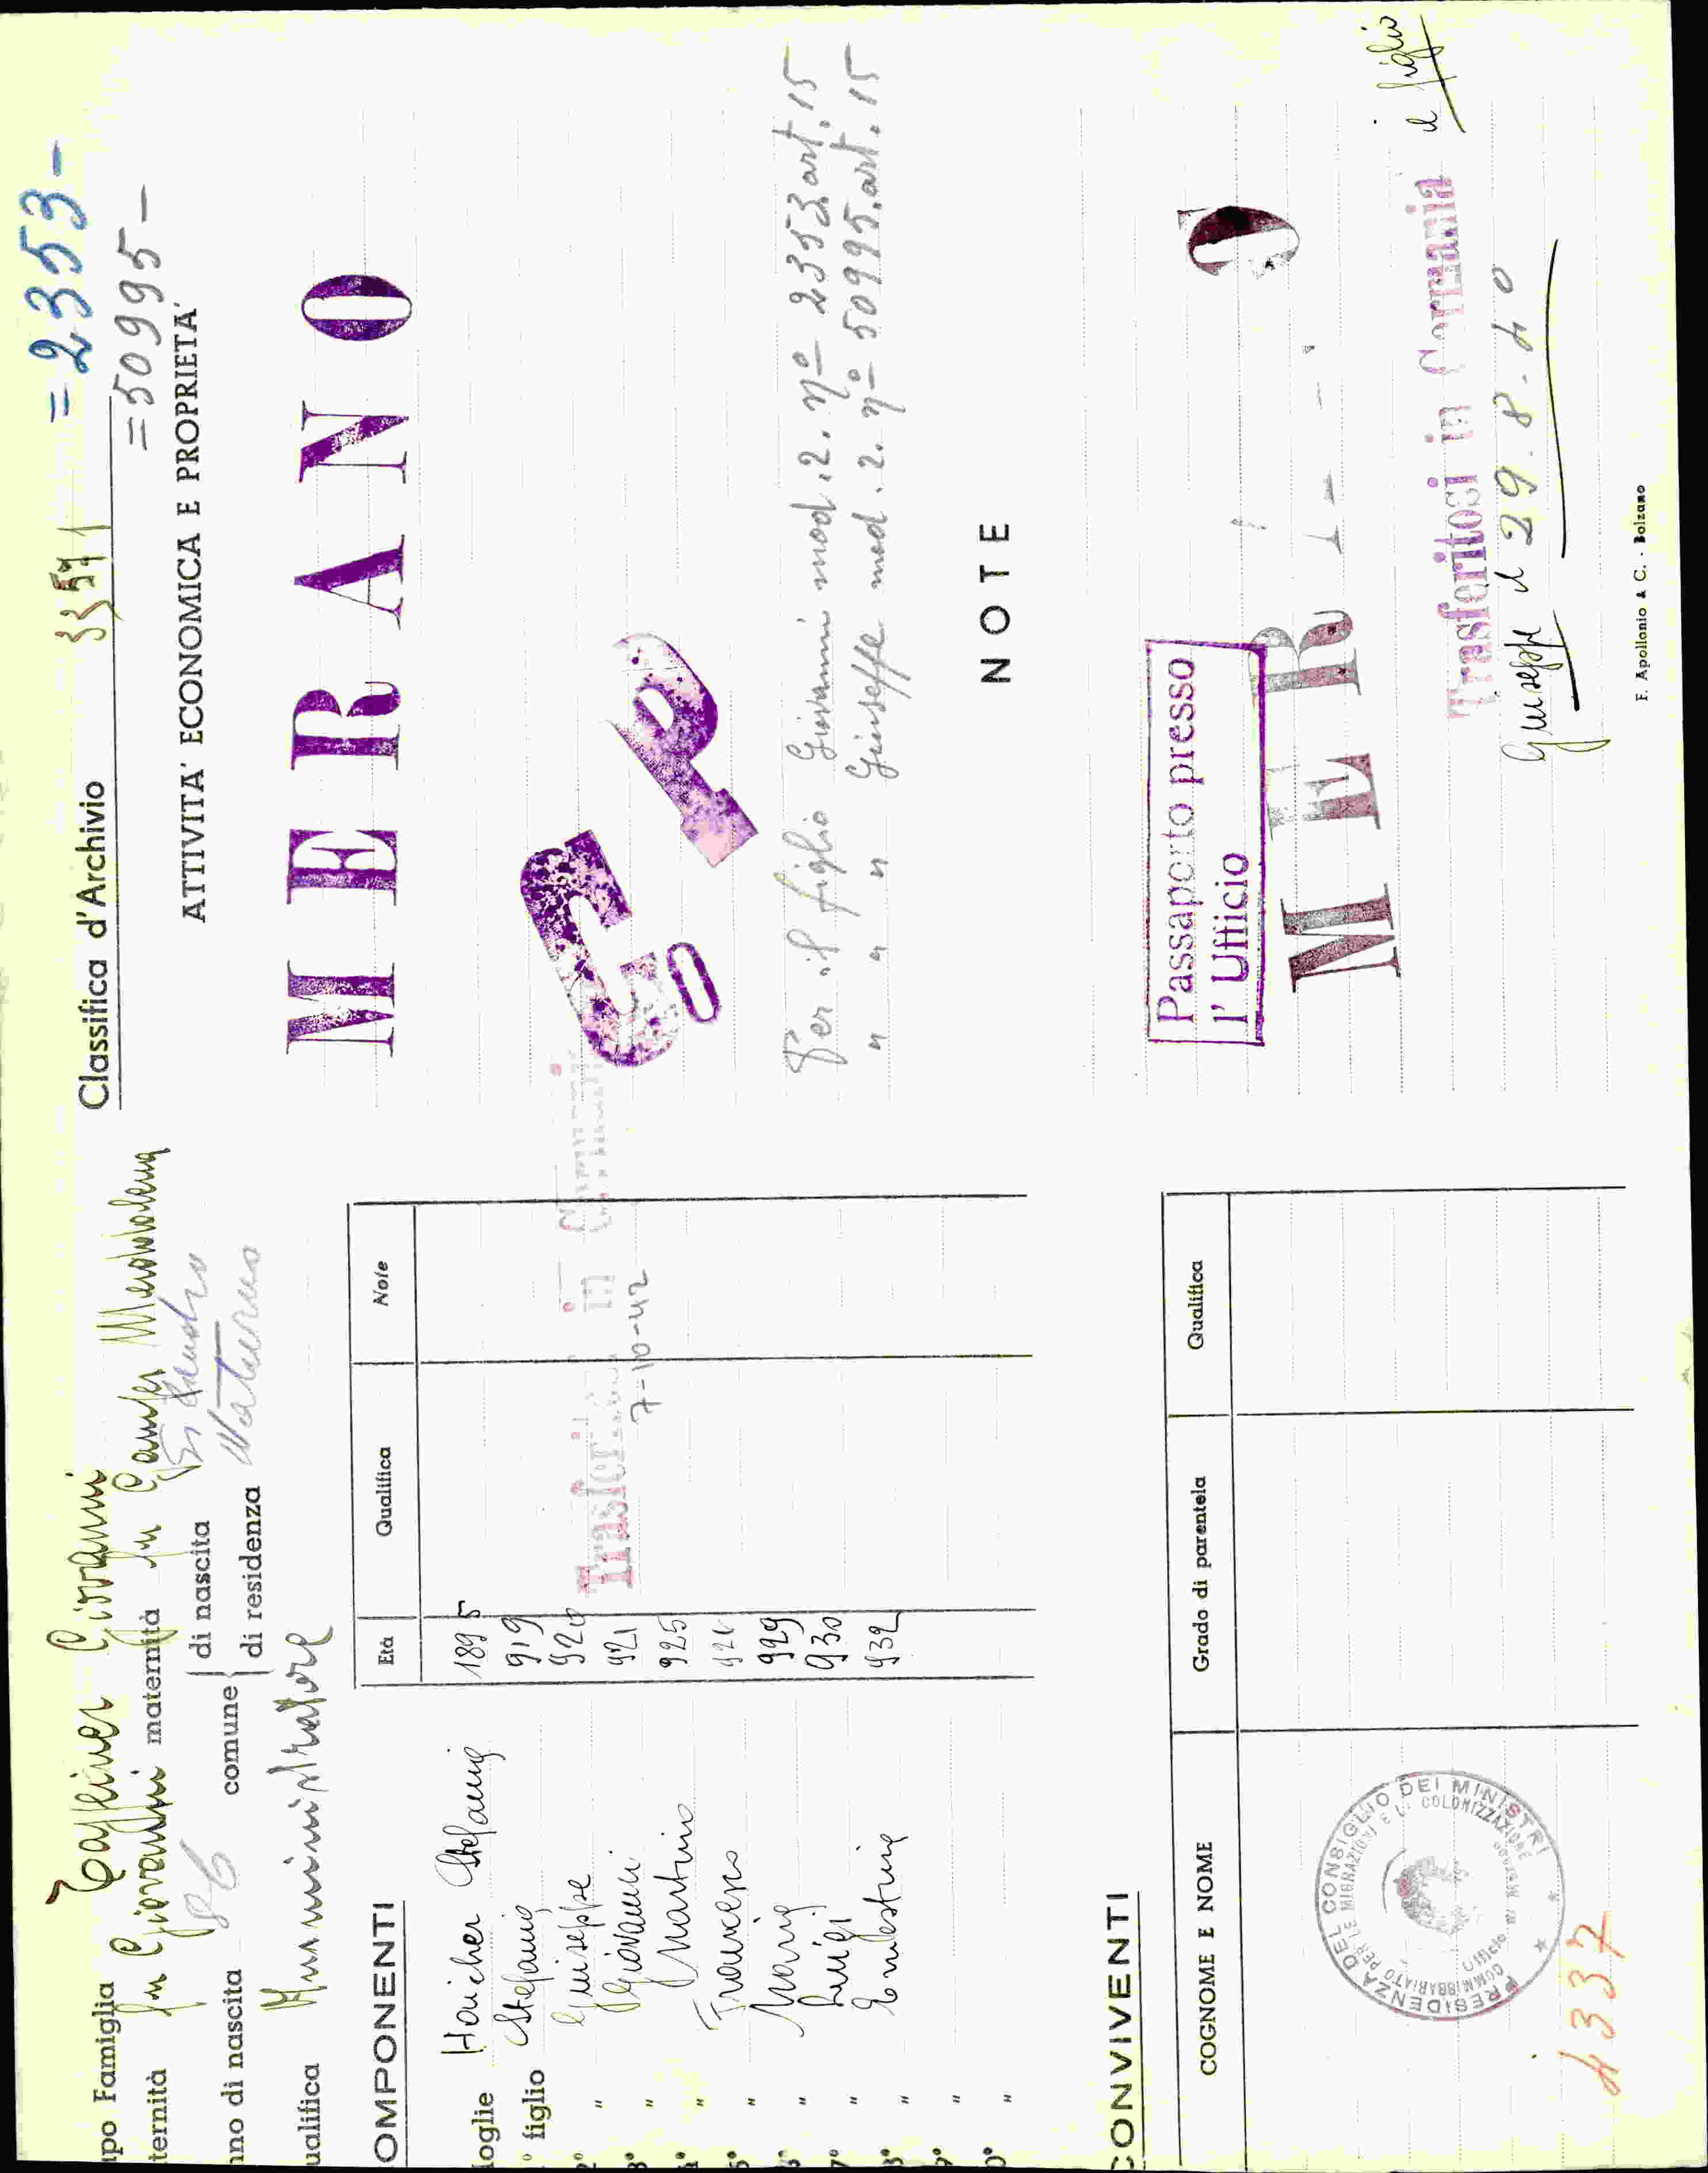 Classifica d'Archivio 3351 = 2353 -
= 50995 -
po Famiglia Giovanni
ternità fu Giovanni maternità fu
nno di nascita 86 comune di nascita
di residenza Naturno
ualifica Amministratore
OMPONENTI
Età Qualifica Note
oglie Stefania 1895
° figlio Stefania 919
2° " Giuseppe 920
3° " Giovanni 921
4° " Martino 925
5° " Francesco
6° " Maria 929
7° " Luigi 930
8° " 932
9° "
0° "
Trasferitosi in Germania
7-10-42
CONVIVENTI
COGNOME E NOME Grado di parentela Qualifica
PRESIDENZA DEL CONSIGLIO DEI MINISTRI
COMMISSARIATO PER LE MIGRAZIONI E LA COLONIZZAZIONE
Ufficio di
4337
ATTIVITA' ECONOMICA E PROPRIETA'
MERANO
G P
0
Per il figlio Giovanni mod. 2. nº 2353 art. 15
" " " Giuseppe mod. 2. nº 50995. art. 15
NOTE
Passaporto presso
l' Ufficio
MER O
Trasferitosi in Germania il figlio
Giuseppe il 29-8-40
F. Apollonio & C. - Bolzano